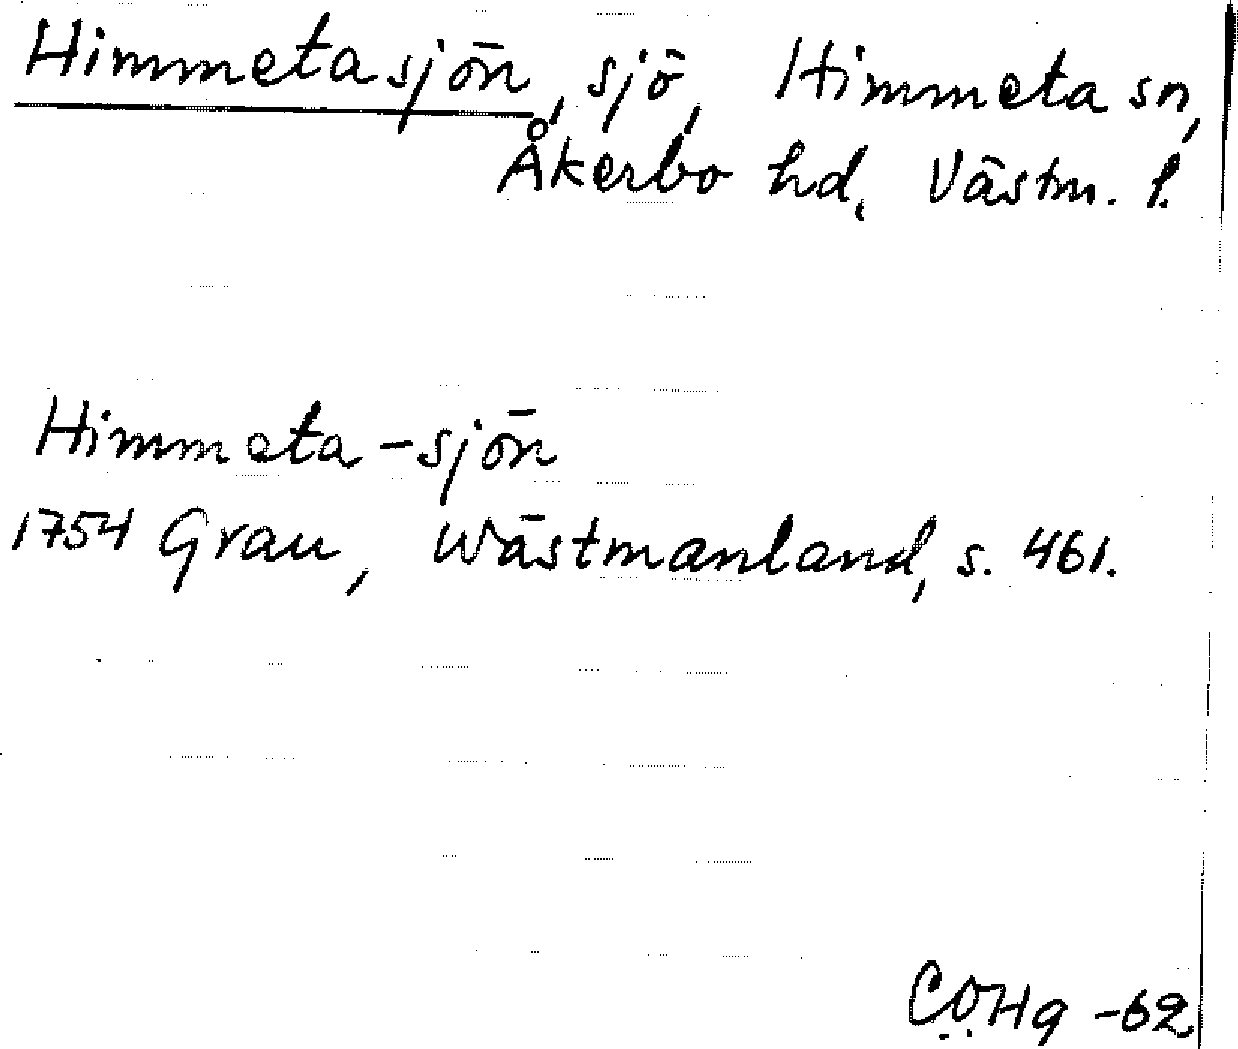 Himmetasjön, sjö, Himmeta sn,
Åkerbo hd, Västm. l.
Himmeta-sjön
1754 Grau, Wästmanland, s. 461.
CÖHg -62